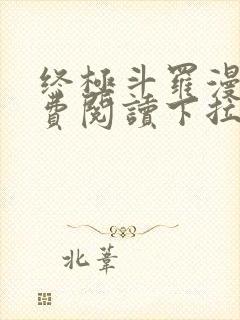 终極斗羅漫
費閱讀下拉
北葦